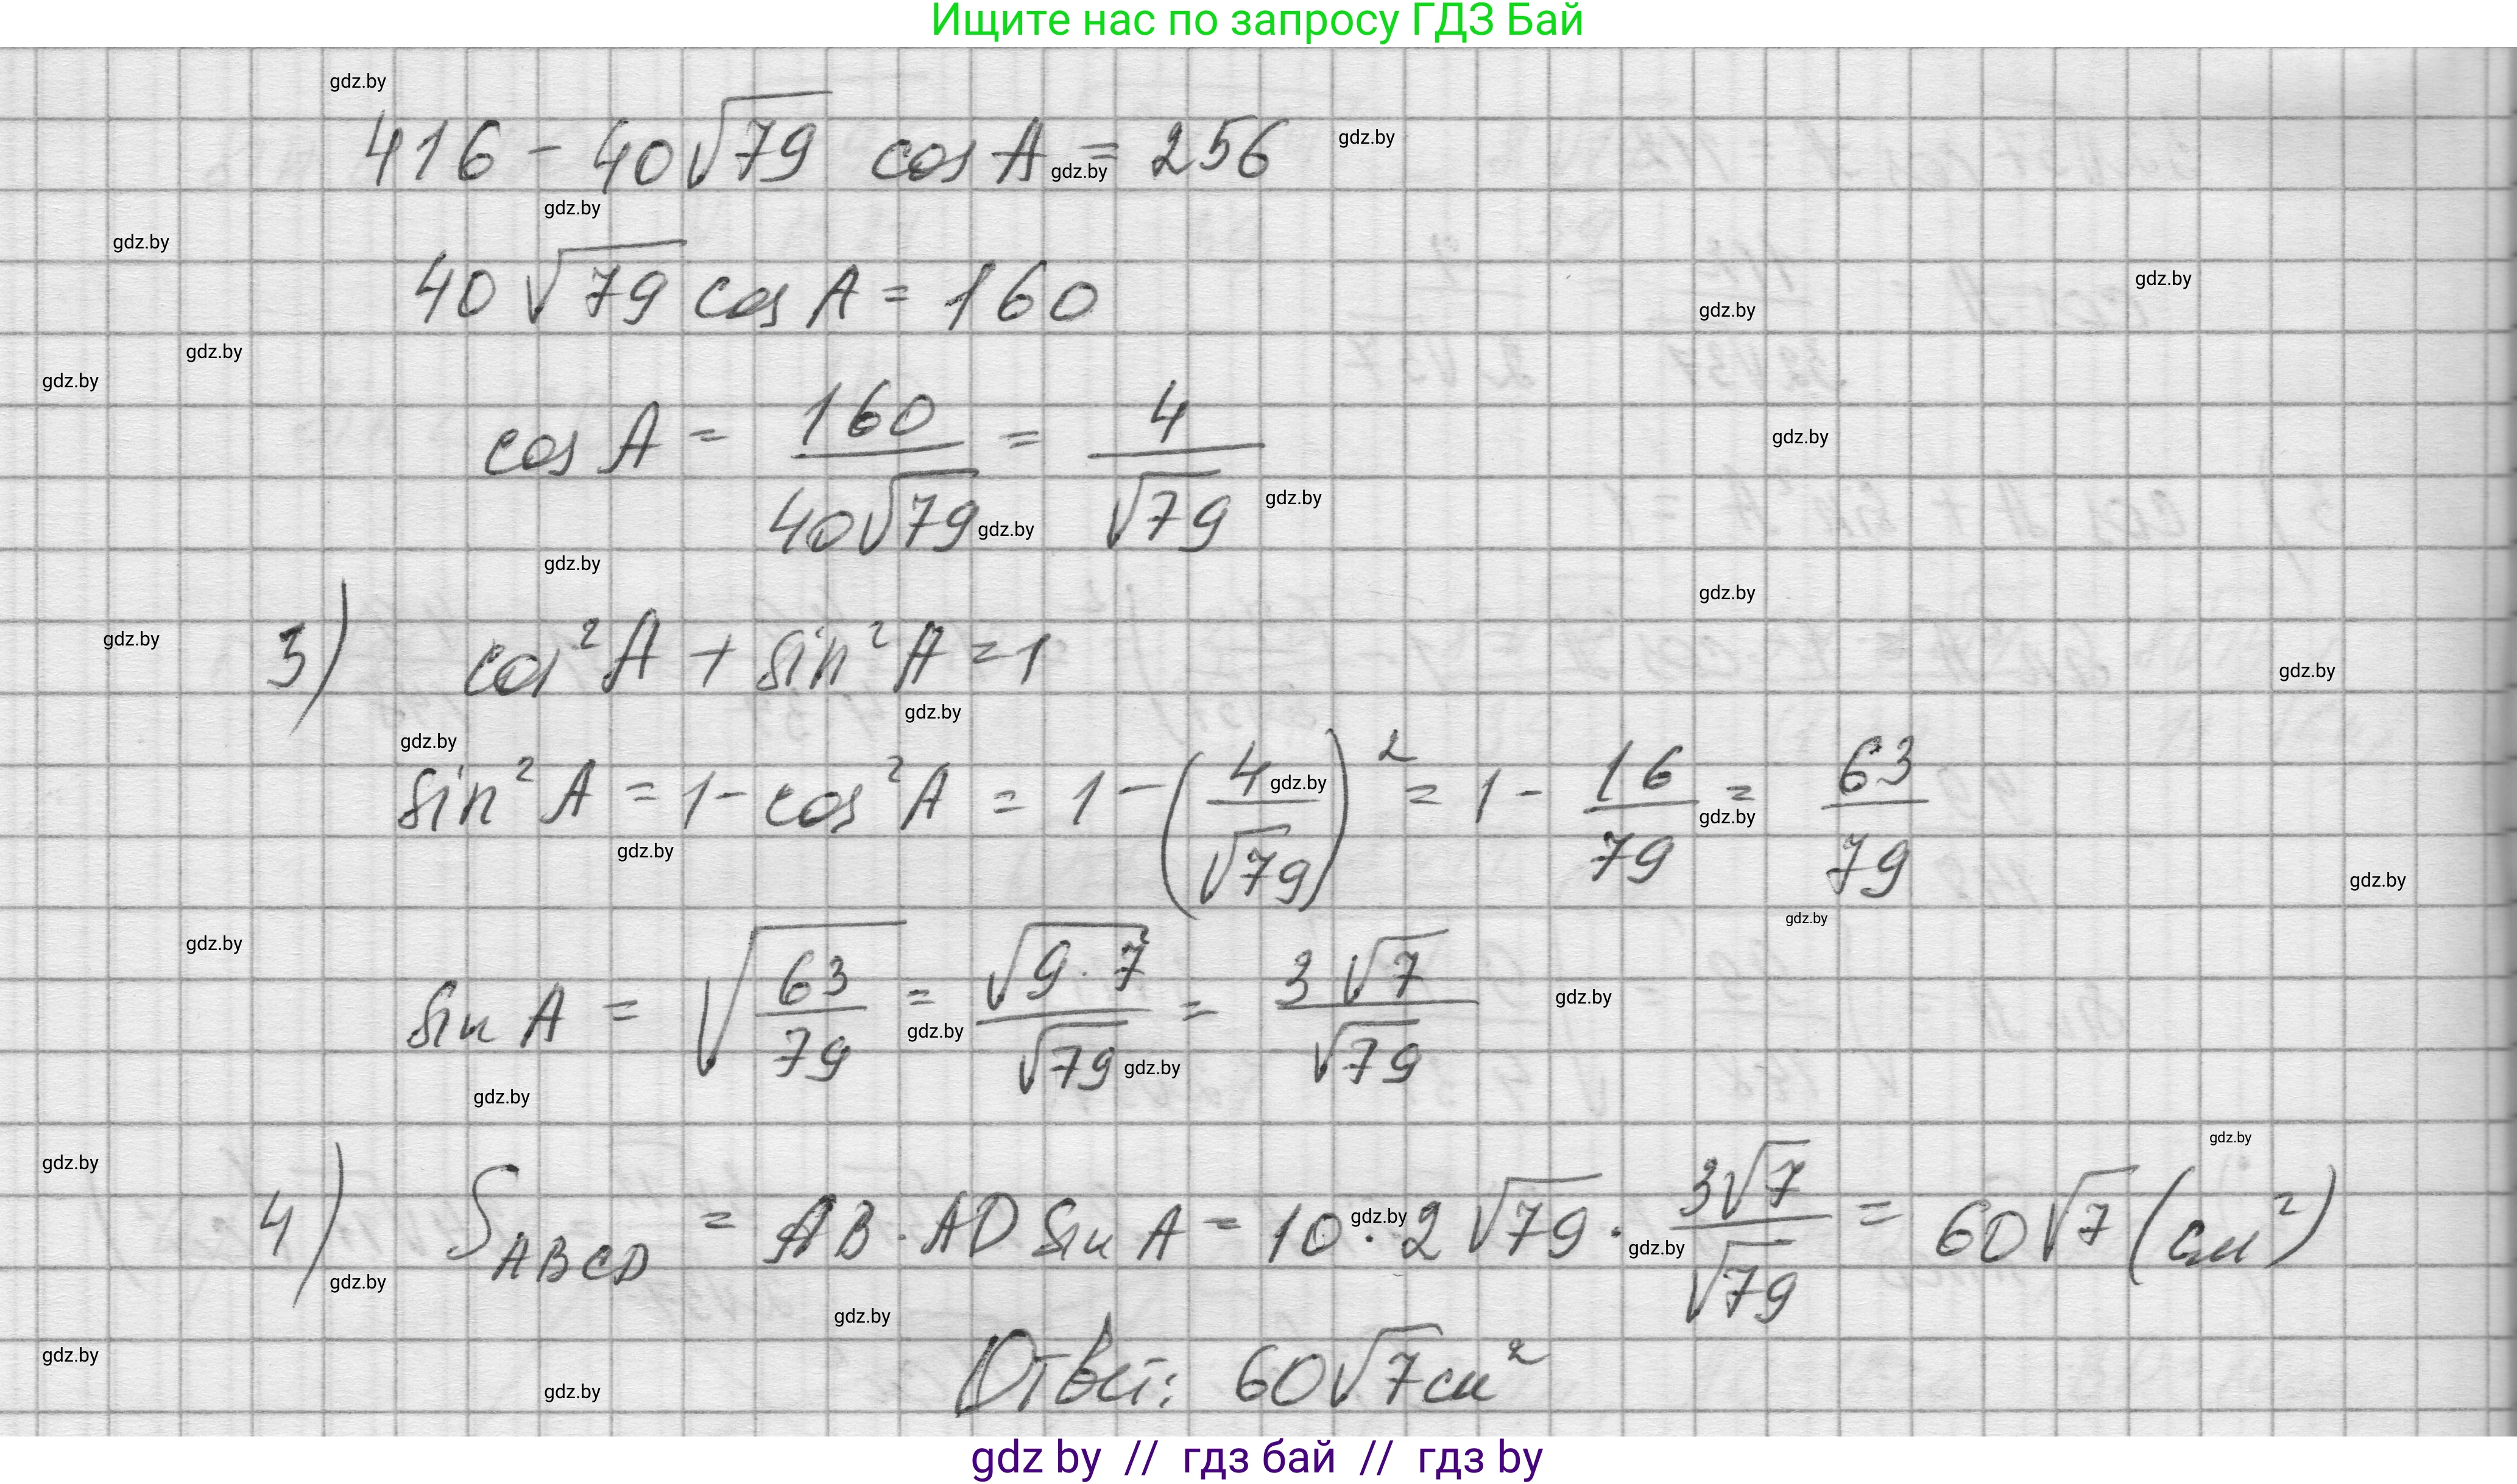 Ищите нас по запросу ГДЗ Бай
416 - 40√79 cos A = 256
40 √79 cos A = 160
cos A = 160/(40√79) = 4/√79
3) cos² A + sin² A = 1
sin² A = 1 - cos² A = 1 - (4/√79)² = 1 - 16/79 = 63/79
sin A = √(63/79) = √(9·7)/√79 = 3√7/√79
4) S ABCD = AB · AD sin A = 10 · 2√79 · 3√7/√79 = 60√7 (см²)
Ответ: 60√7 см²
gdz by // гдз бай // гдз by